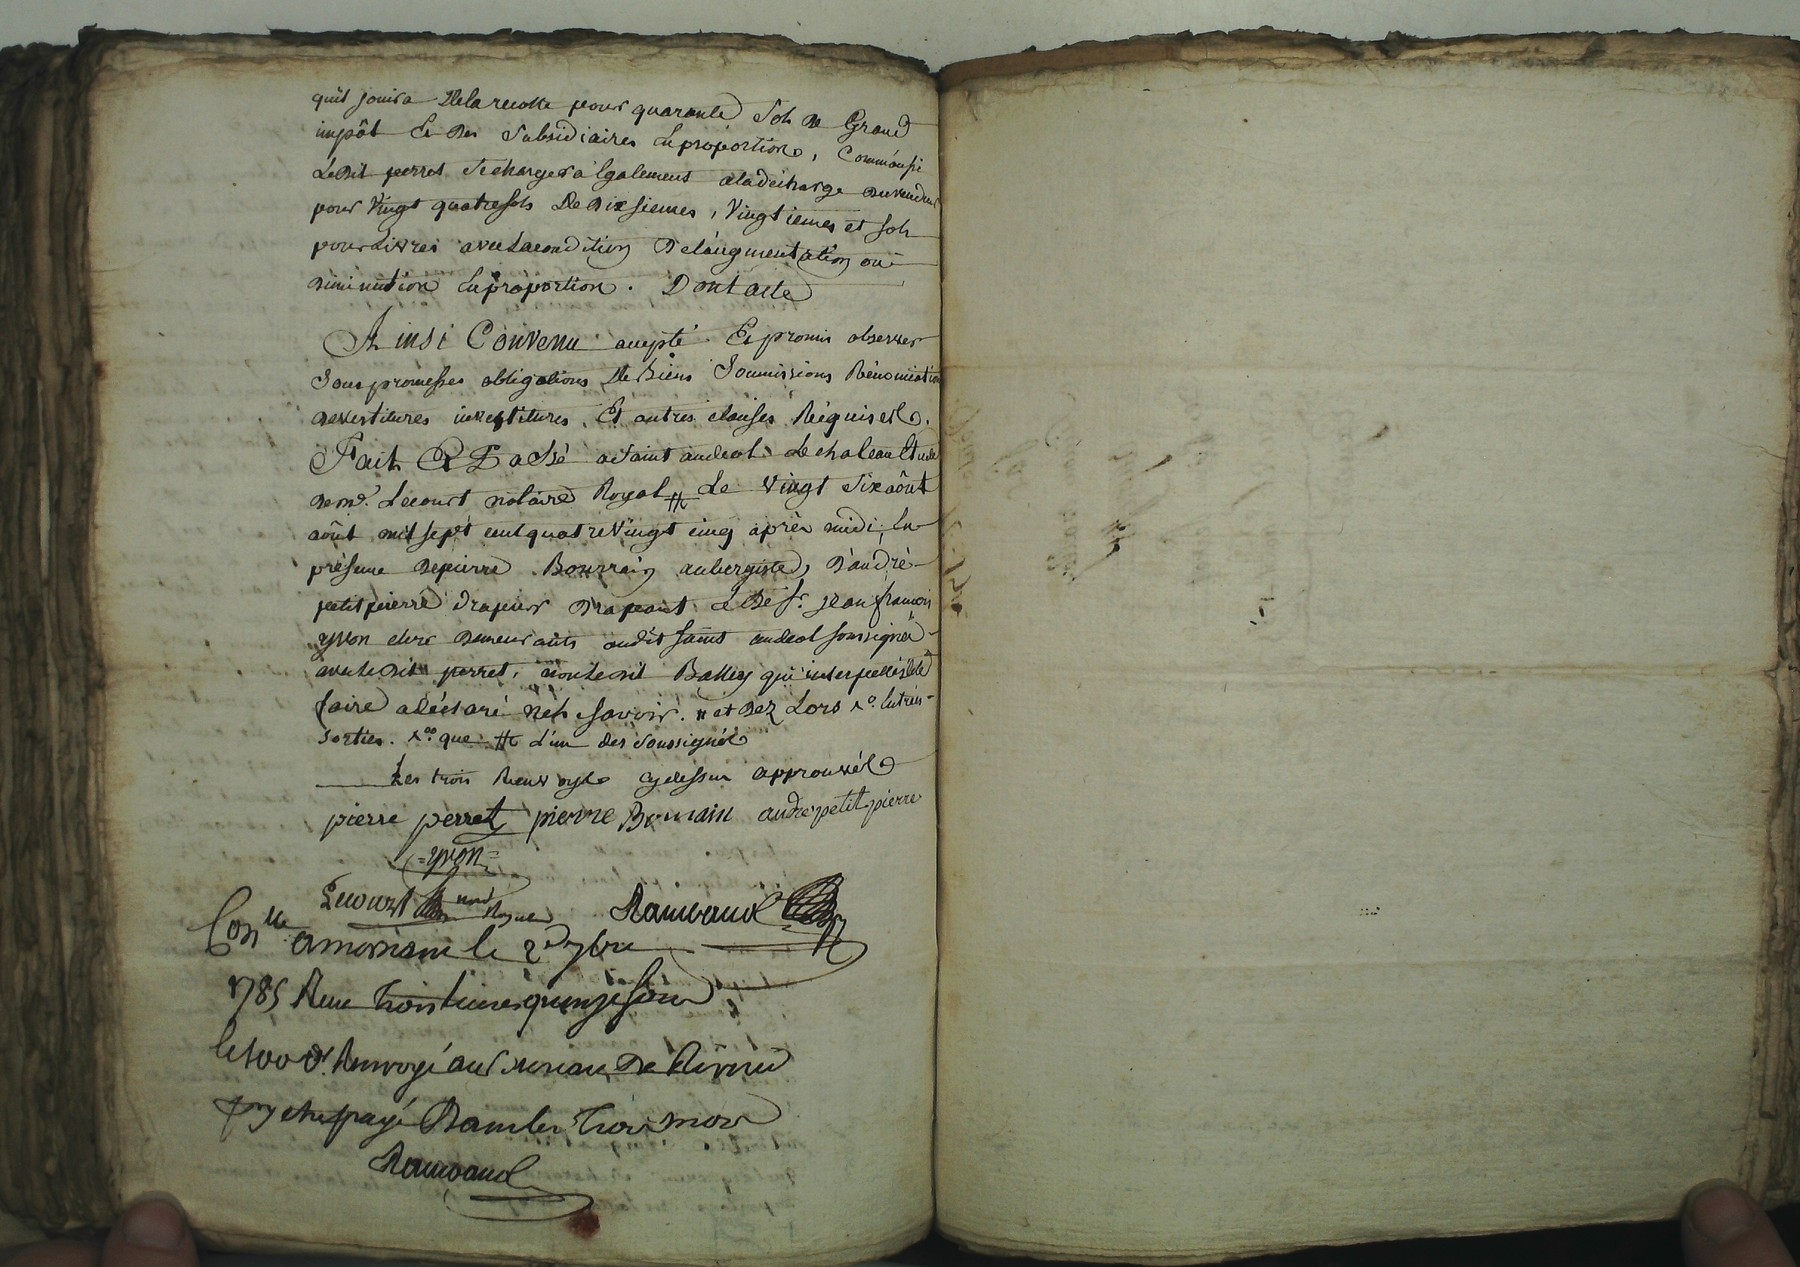 quil jouira Dela recolte pour quarante Sols de Grand
impôt Et Des Subsidiaires En proportion, Comm'aussi
Ledit perret Se chargera Egalement a la décharge du vendeur
pour Vingt quatre sols De Dixsiemes, Vingtiemes et sols
pour Livres avec La condition De l'augmentation ou
diminution En proportion. Dont acte
Ainsi Convenu accepté Et promis observer
Sous promesses obligations De Biens Soumissions Rénonciations
devestitures investitures Et autres clauses Réquises.
Fait Et Passé a Saint andeol Le chateau Etude
de me. Lecourt notaire Royal # Le Vingt Six aôut
aôut mil sept cent quatre Vingt cinq après midi, En
présence de pierre Bourrain aubergiste, D'andré
petit pierre drapier Drapant & De Sr. jean françois
yvon clerc demeurants audit saint andeol soussignés
avec ledit perret, non ledit Balley qui interpellé de le
faire a déclaré ne le savoir. # et Dez Lors
sorties. que # d'un des soussignés
Les trois Renvoys cy dessus approuvés
pierre perret pierre Bourrain andré petit pierre
=yvon=
Lecourt Rambaud
Con.lle a mornant le 2d 7bre
1785 Reçu trois livres quinze sous
le 100 d. Renvoyé au bureau De
pour y etre payé Dans les trois mois
Rambaud